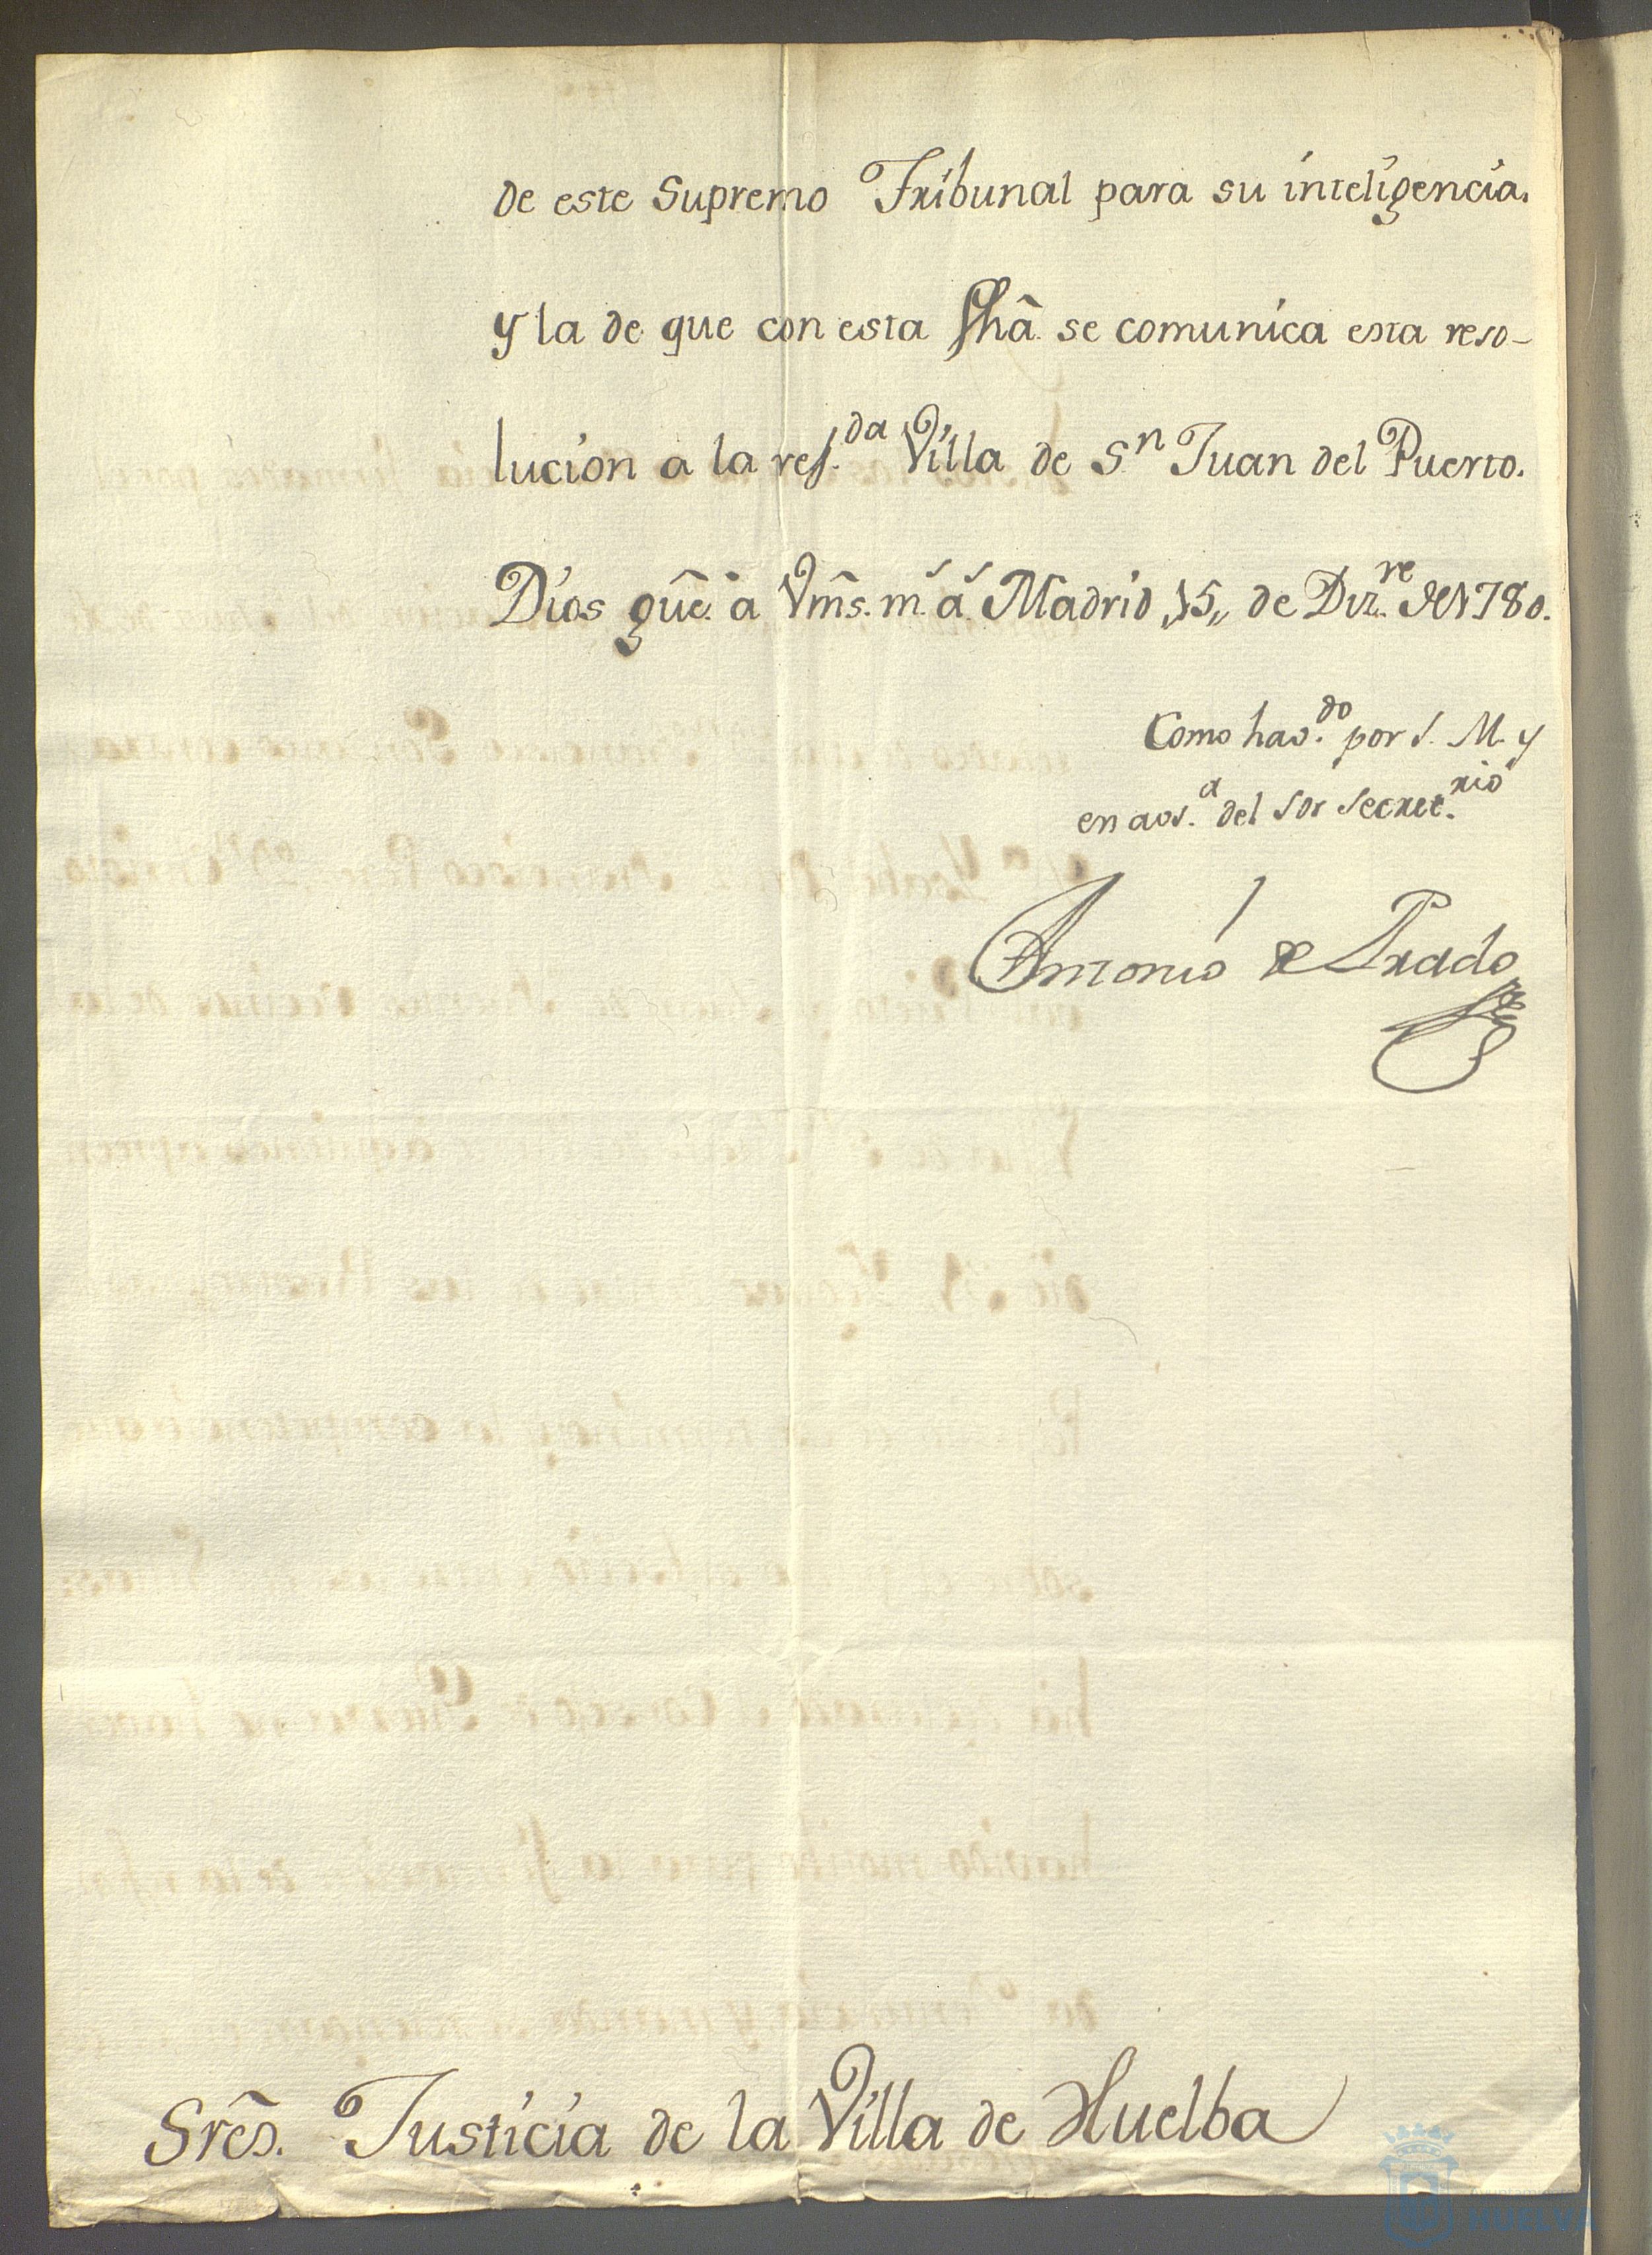 de este Supremo Tribunal para su inteligencia.
y la de que con esta fhã. se comunica esta reso-
lucion a la ref.da Villa de S.n Juan del Puerto.
Dios gũe. à Vm̃s. m.s a.s Madrid 15 de Diz.re de 1780.
Como hav.do por S. M. y
en aus.a del Sor Secret.rio
Antonio de Prado
Sres̃. Justicia de la Villa de Huelba
HUELVA